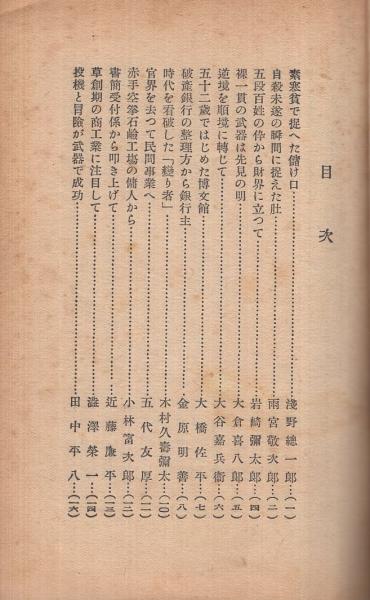 目次
素寒貧で捉へた儲け口……淺野總一郎…(一)
自殺未遂の瞬間に捉えた肚……雨宮敬次郎…(二)
五段百姓の倅から財界に立つて……岩崎彌太郎…(四)
裸一貫の武器は先見の明……大倉喜八郎…(五)
逆境を順境に轉じて……大谷嘉兵衞…(六)
五十二歳ではじめた博文館……大橋佐平…(七)
破産銀行の整理方から銀行主……金原明善…(八)
時代を看破した「變り者」……木村久壽彌太…(一〇)
官界を去つて民間事業へ……五代友厚…(一一)
赤手空拳石鹼工場の傭人から……小林富次郎…(一二)
書簡受付係から叩き上げて……近藤廉平…(一三)
草創期の商工業に注目して……澁澤榮一…(一四)
投機と冒險が武器で成功……田中平八…(一六)